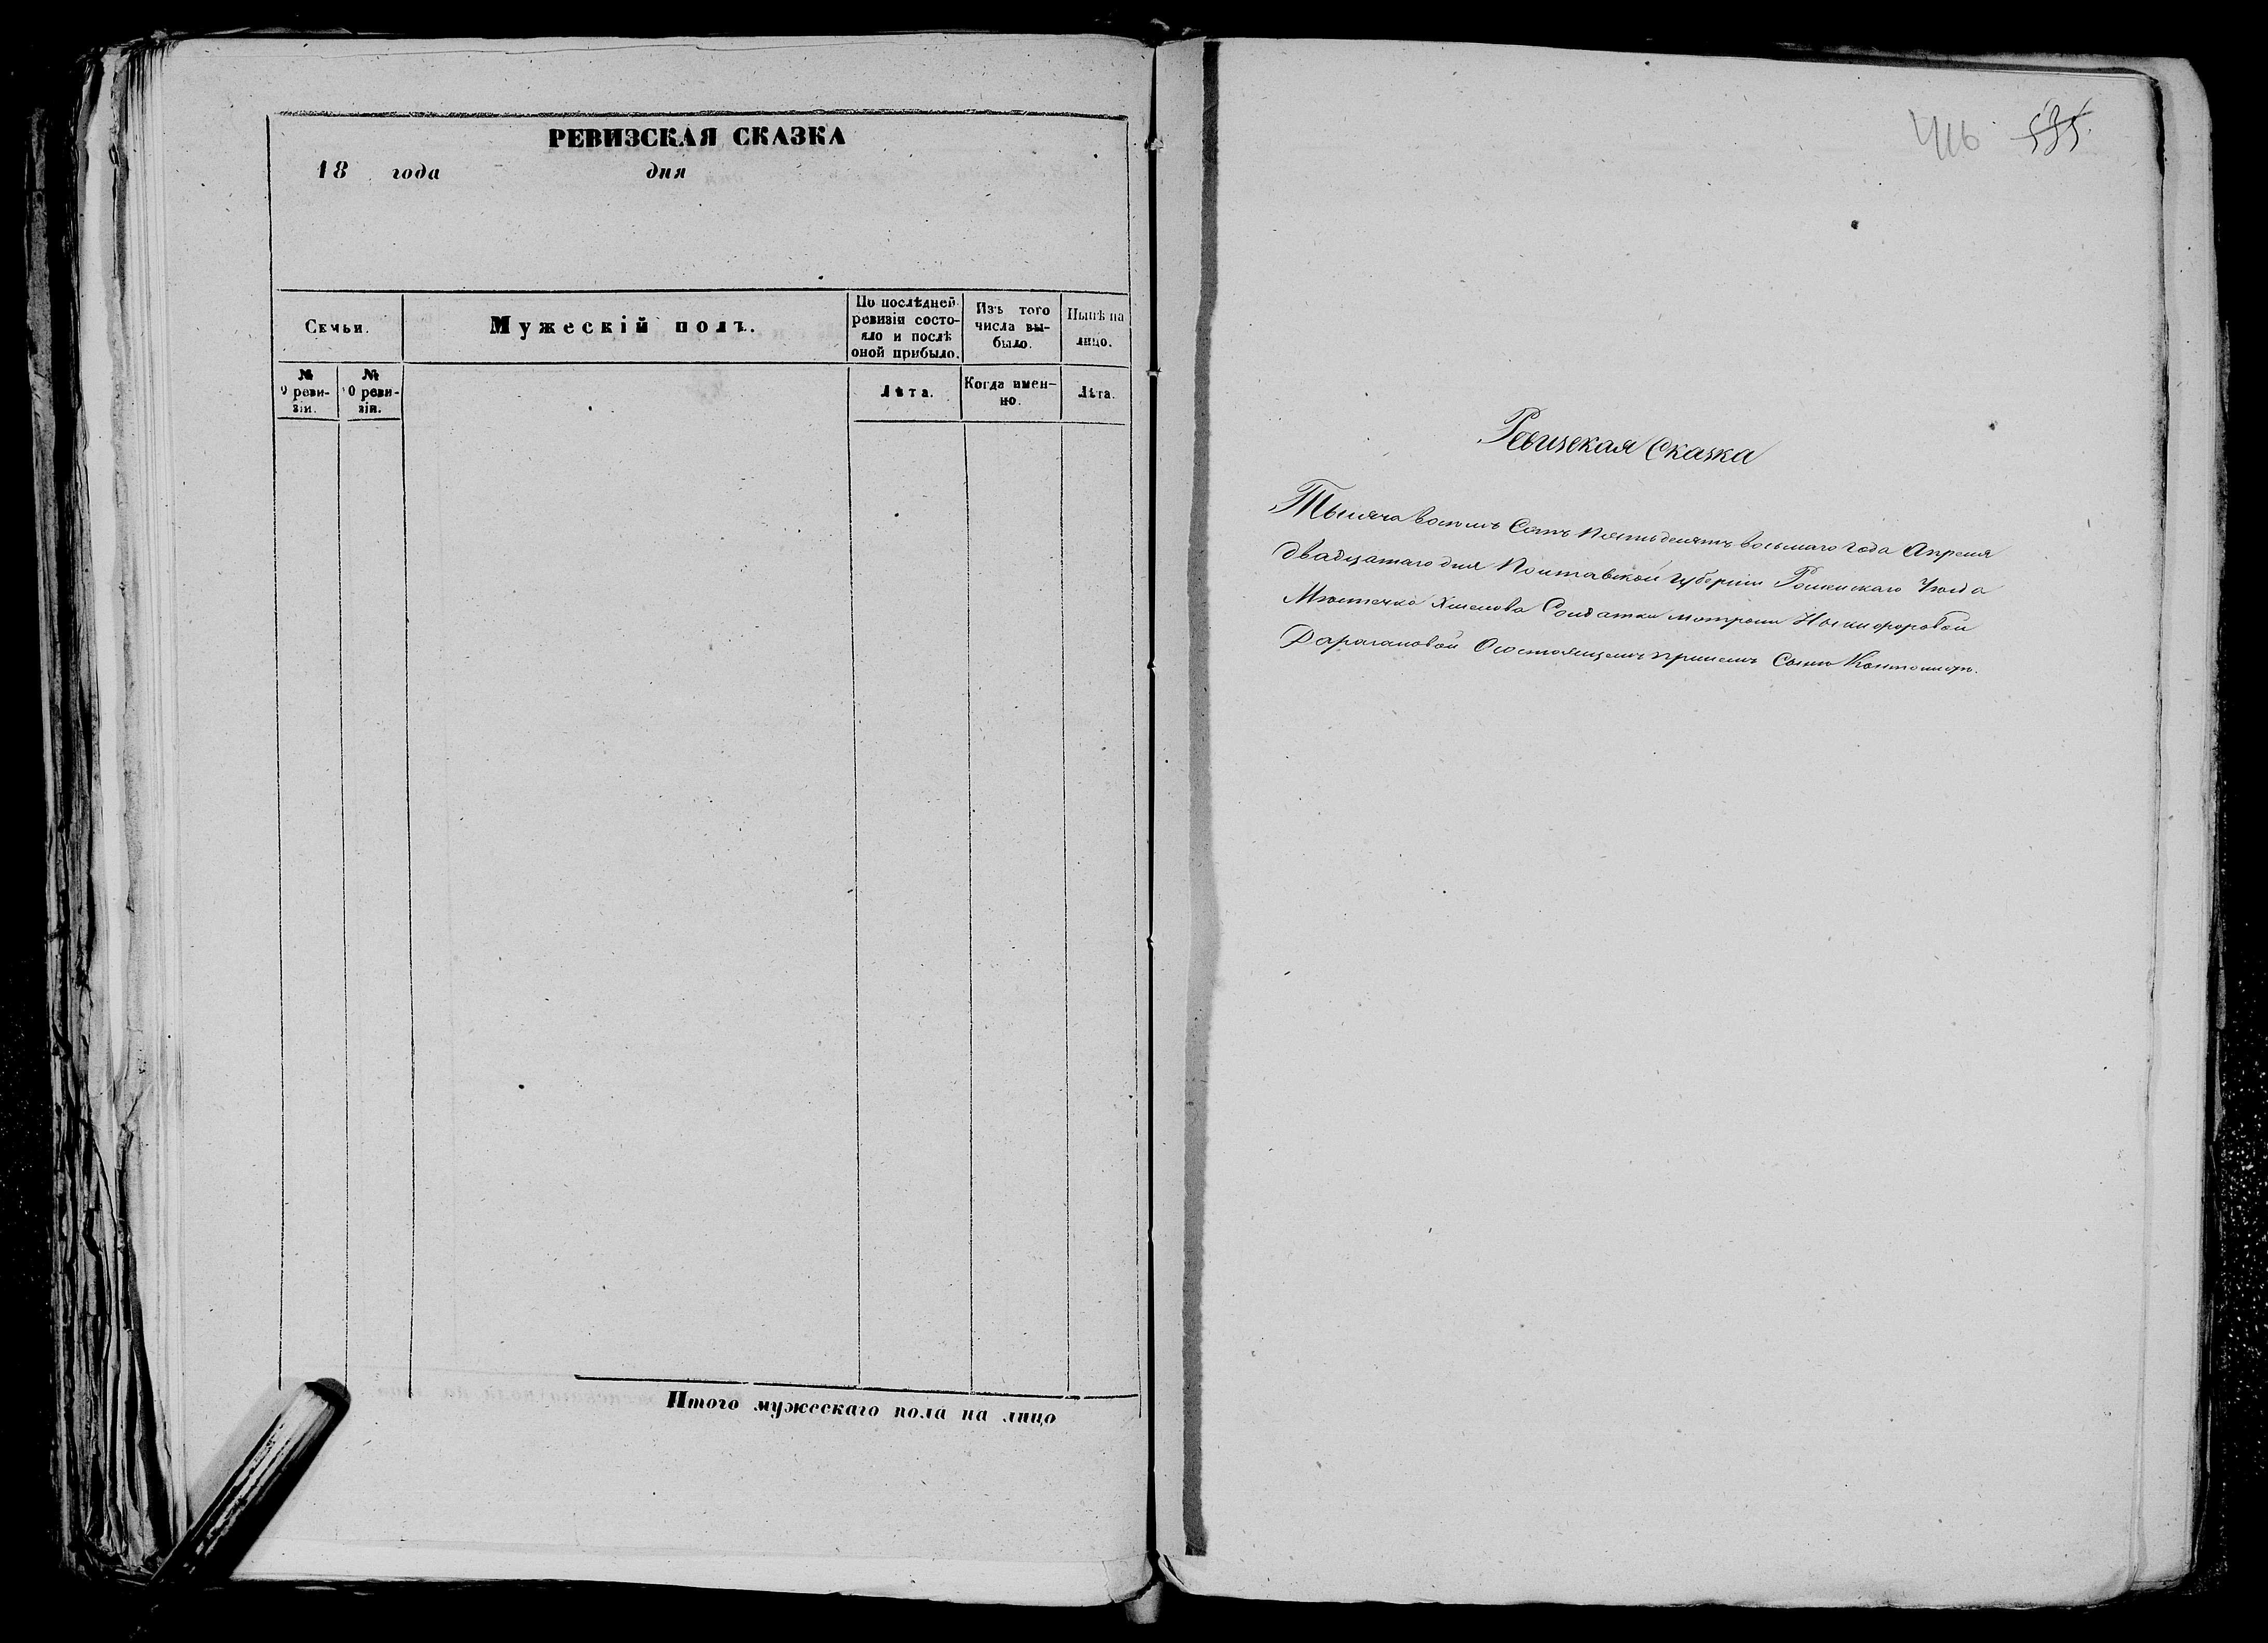 РЕВИЗСКАЯ СКАЗКА
18 года дня
Семьи.
Мужескій полъ.
По послѣдней ревизіи состояло и послѣ оной прибыло.
Изъ того числа выбыло.
Нынѣ на лицо.
№ 9 ревизіи.
№ 10 ревизіи.
Лѣта.
Когда именно.
Лѣта.
Итого мужескаго пола на лицо
416 535
Ревизская Сказка
Тысяча восемь Сотъ пятьдесятъ восьмаго года Апреля
двадцатаго дня Полтавской губерніи Роменскаго Уезда
Местечка Хмелова Солдатки Мотроны Никифоровой
Дарагановой О состоящемъ при ней Сыне